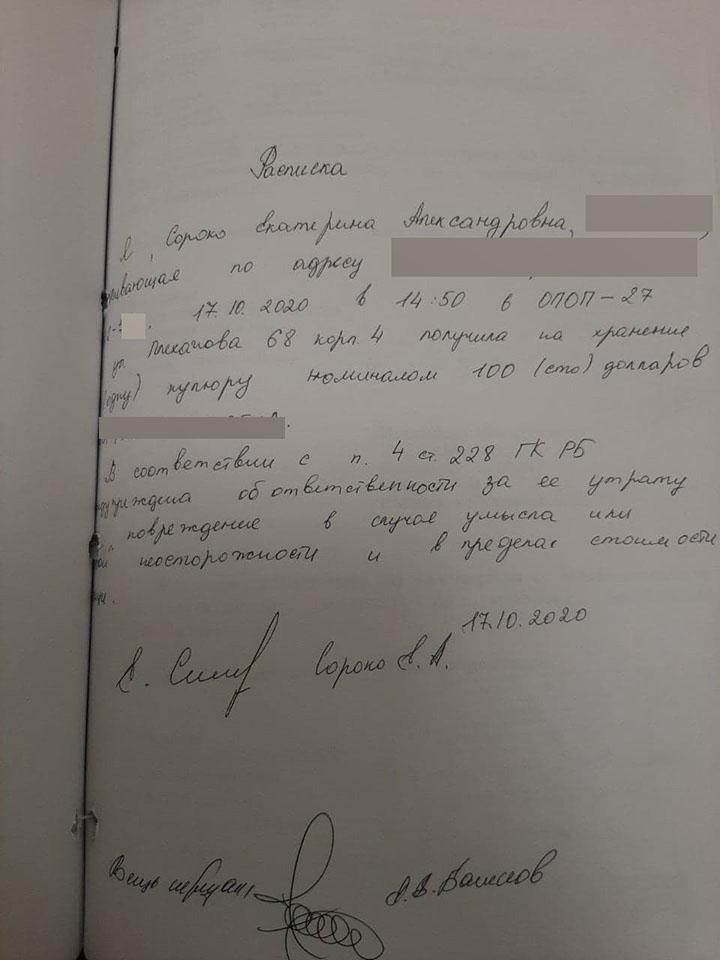 Расписка
Я, Сороко Екатерина Александровна,
живающая по адресу
17.10.2020 в 14:50 в ОПОП-27
ул. Плеханова 68 корп. 4 получила на хранение
(одну) купюру номиналом 100 (сто) долларов
В соответствии с п. 4 ст. 228 ГК РБ
об ответственности за ее утрату
повреждение в случае умысла или
неосторожности и в пределах стоимости
Сороко Е. А. 17.10.2020
Вещь передал